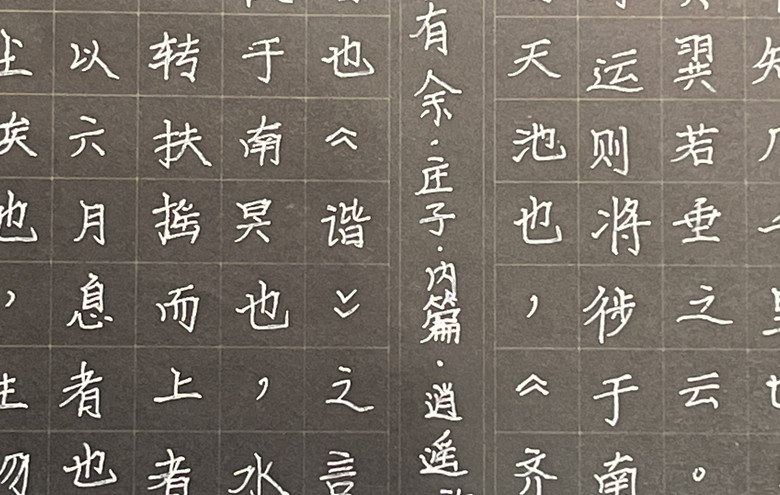 翼若垂之云。
运则将徙于南
天池也，《齐
有余·庄子·内篇·逍遥
也《谐》之言
于南冥也，水
转扶摇而上者
以六月息者也
也，